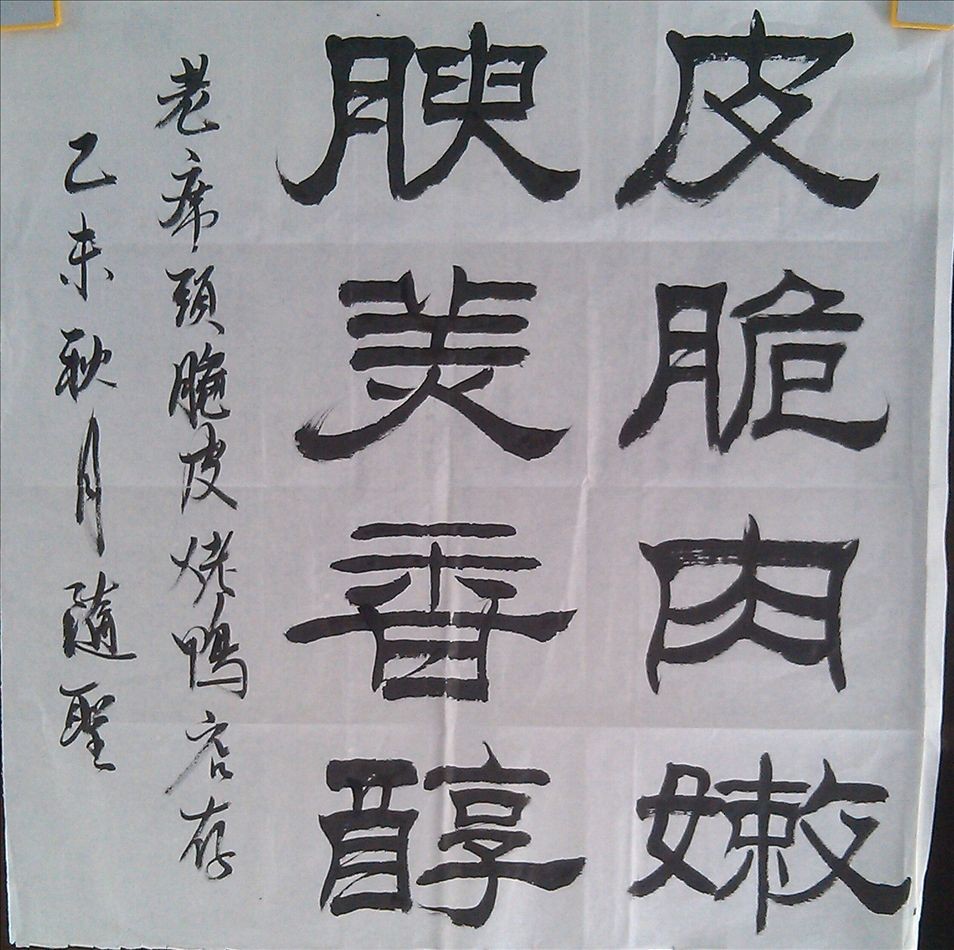 皮脆肉嫩
腴美香醇
老席頭脆皮烤鴨店存
乙未秋月隨聖